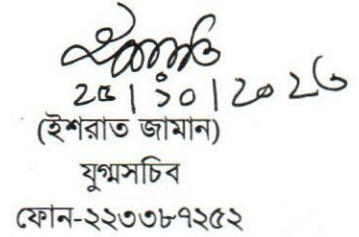 ২৫|১০|২০২৩
(ইশরাত জামান)
যুগ্মসচিব
ফোন-২২৩৩৮৭২৫২